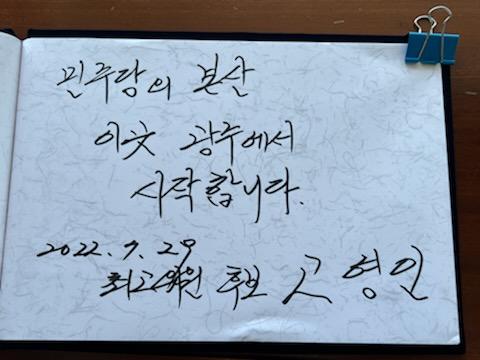 민주당의 본산
이곳 광주에서
시작합니다.
2022.7.29
최고위원 후보 고영인